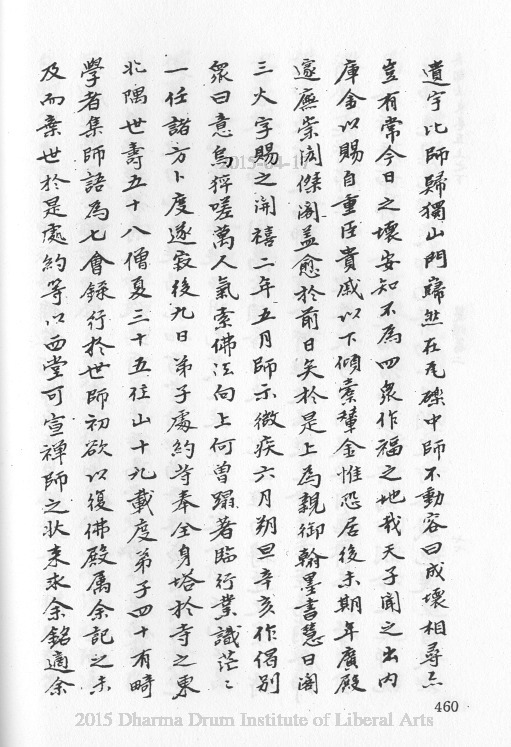 遺宇比師歸獨山門巋然在瓦礫中師不動容曰成壞相尋亦
豈有常今日之壞安知不為四衆作福之地哉天子聞之出內
庫金以賜自重臣貴戚以下傾橐輦金惟恐居後未期年廣殿
邃廡崇閎傑閣盖愈於前日矣於是上為親御翰墨書慧日閣
三大字賜之開禧二年五月師示微疾六月朔旦辛亥作偈別
衆曰意烏猝嗟萬人氣索佛法向上何曾蹋著臨行業識茫〻
一任諸方卜度遂寂後九日弟子處約等奉全身塔於寺之東
北隅世壽五十八僧夏三十五住山十九載度弟子四十有畸
學者集師語為七會錄行於世師初欲以復佛殿屬余記之未
及而棄世於是處約等以西堂可宣禪師之狀來求余銘適余
460
2015 Dharma Drum Institute of Liberal Arts